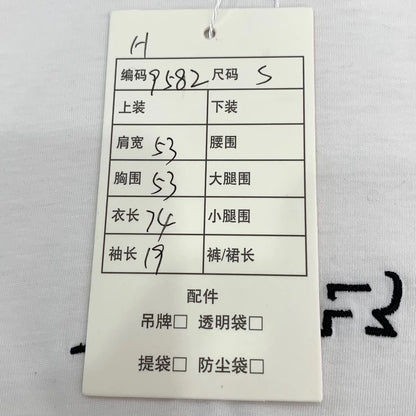 H
编码 9582 尺码 S
上装 下装
肩宽 53 腰围
胸围 53 大腿围
衣长 74 小腿围
袖长 19 裤/裙长
配件
吊牌□ 透明袋□
提袋□ 防尘袋□